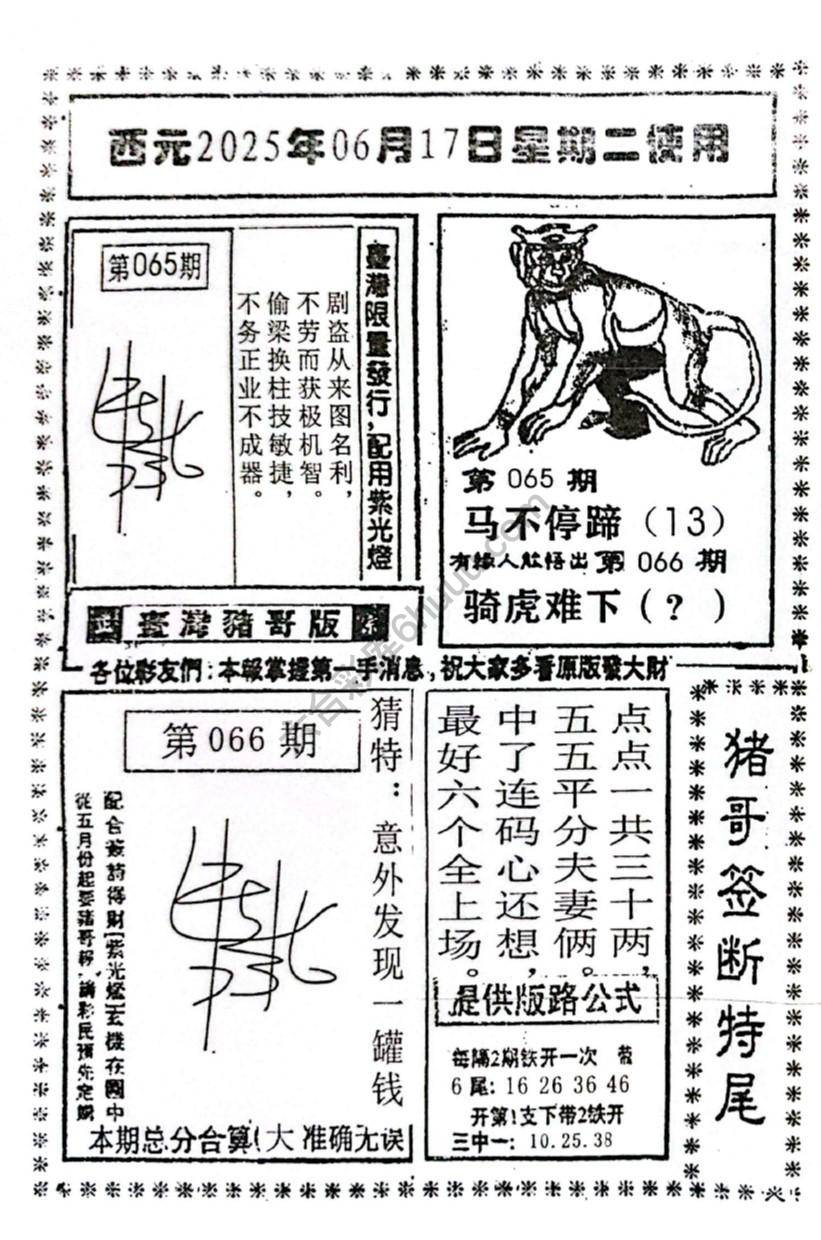 西元2025年06月17日星期二使用
第065期
臺灣限量發行,配用紫光燈
剧盗从来图名利，
不劳而获极机智。
偷梁换柱技敏捷，
不务正业不成器。
臺灣豬哥版
第 065 期
马不停蹄（13）
有緣人能悟出 第 066 期
骑虎难下（?）
各位彩友們:本報掌握第一手消息,祝大家多看原版發大財
第 066 期
猜特：意外发现一罐钱
配合簽詩得財[紫光燈]玄機在圖中
從五月份起要豬哥報 請彩民預先定購
本期总分合算(大 准确无误
点点一共三十两，
五五平分夫妻俩。
中了连码心还想，
最好六个全上场。
提供版路公式
每隔2期铁开一次
6尾: 16 26 36 46
开第1支下带2铁开
三中一: 10.25.38
猪哥签断特尾
六合彩库6huuu.com